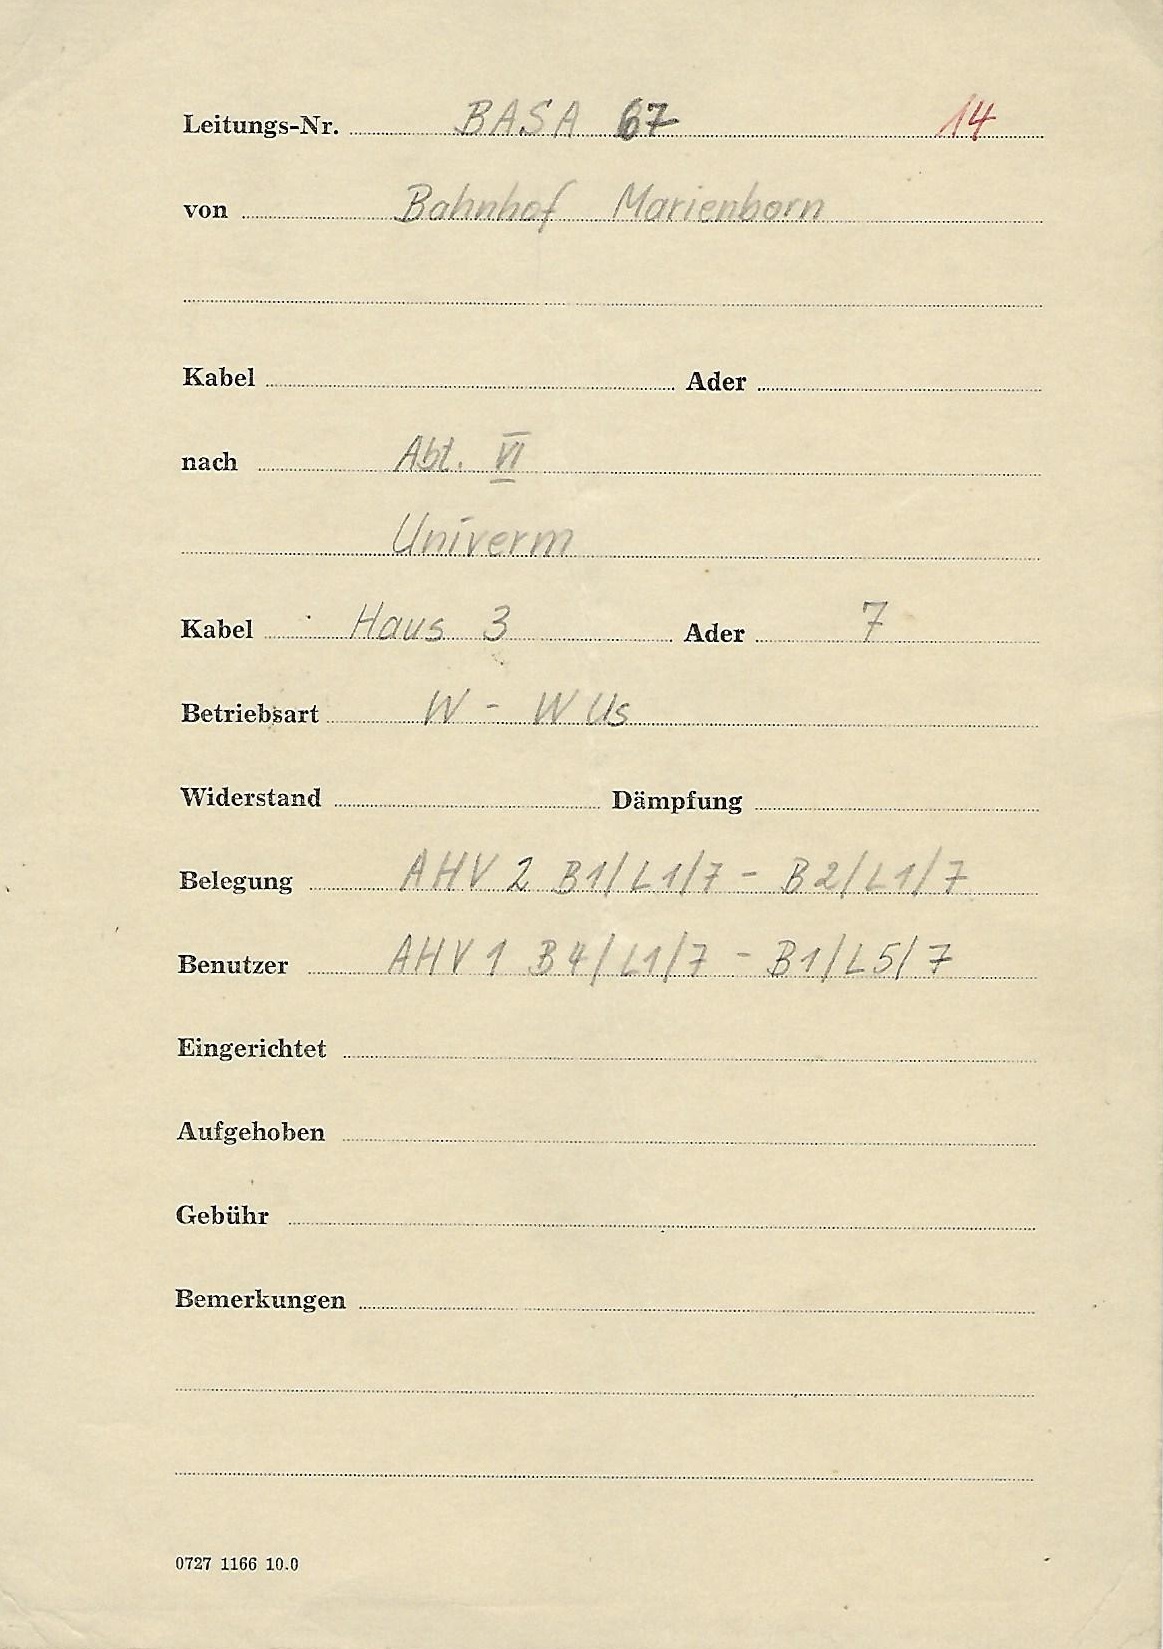 Leitungs-Nr. BASA 67 14
von Bahnhof Marienborn
Kabel Ader
nach Abt. VI
Univerm
Kabel Haus 3 Ader 7
Betriebsart W - W Us
Widerstand Dämpfung
Belegung AHV 2 B1/L1/7 - B2/L1/7
Benutzer AHV 1 B4/L1/7 - B1/L5/7
Eingerichtet
Aufgehoben
Gebühr
Bemerkungen
0727 1166 10.0